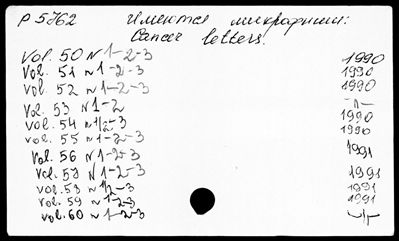 P 5762 Имеются микрофиши:
Cancer letters.
Vol. 50 N 1-2-3 1990
Vol. 51 N 1-2-3 1990
Vol. 52 N 1-2-3 1990
Vol. 53 N 1-2 -"-
Vol. 54 N 1/2-3 1990
Vol. 55 N 1-2-3 1990
Vol. 56 N 1-2-3 1991
Vol. 57 N 1-2-3 1991
Vol. 58 N 1/2-3 1991
Vol. 59 N 1-2-3 1991
Vol. 60 N 1-2-3 -"-